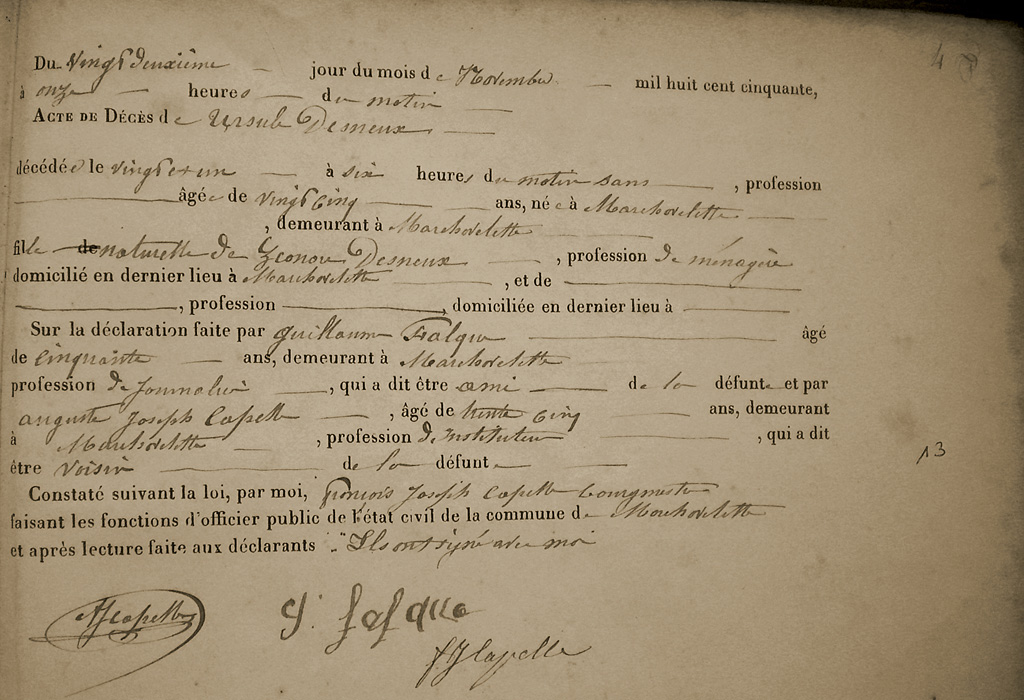 48
Du vingt deuxième jour du mois de Novembre mil huit cent cinquante,
à onze heures du matin
ACTE DE DÉCÈS de Ursule Desneux
décédée le vingt et un à six heures du matin sans , profession
âgée de vingt cinq ans, née à Marchovelette
, demeurant à Marchovelette
fille de naturelle de Desneux , profession de ménagère
domicilié en dernier lieu à Marchovelette , et de
, profession , domiciliée en dernier lieu à
Sur la déclaration faite par guillaume âgé
de cinquante ans, demeurant à Marchovelette
profession de Journalier , qui a dit être ami de la défunte et par
auguste Joseph Capelle , âgé de trente cinq ans, demeurant
à Marchovelette , profession d'instituteur , qui a dit
être voisin de la défunte
13
Constaté suivant la loi, par moi, françois Joseph Capelle bourgmestre
faisant les fonctions d'officier public de l'état civil de la commune de Marchovelette
et après lecture faite aux déclarants Ils ont signé avec moi
AJCapelle
FJCapelle